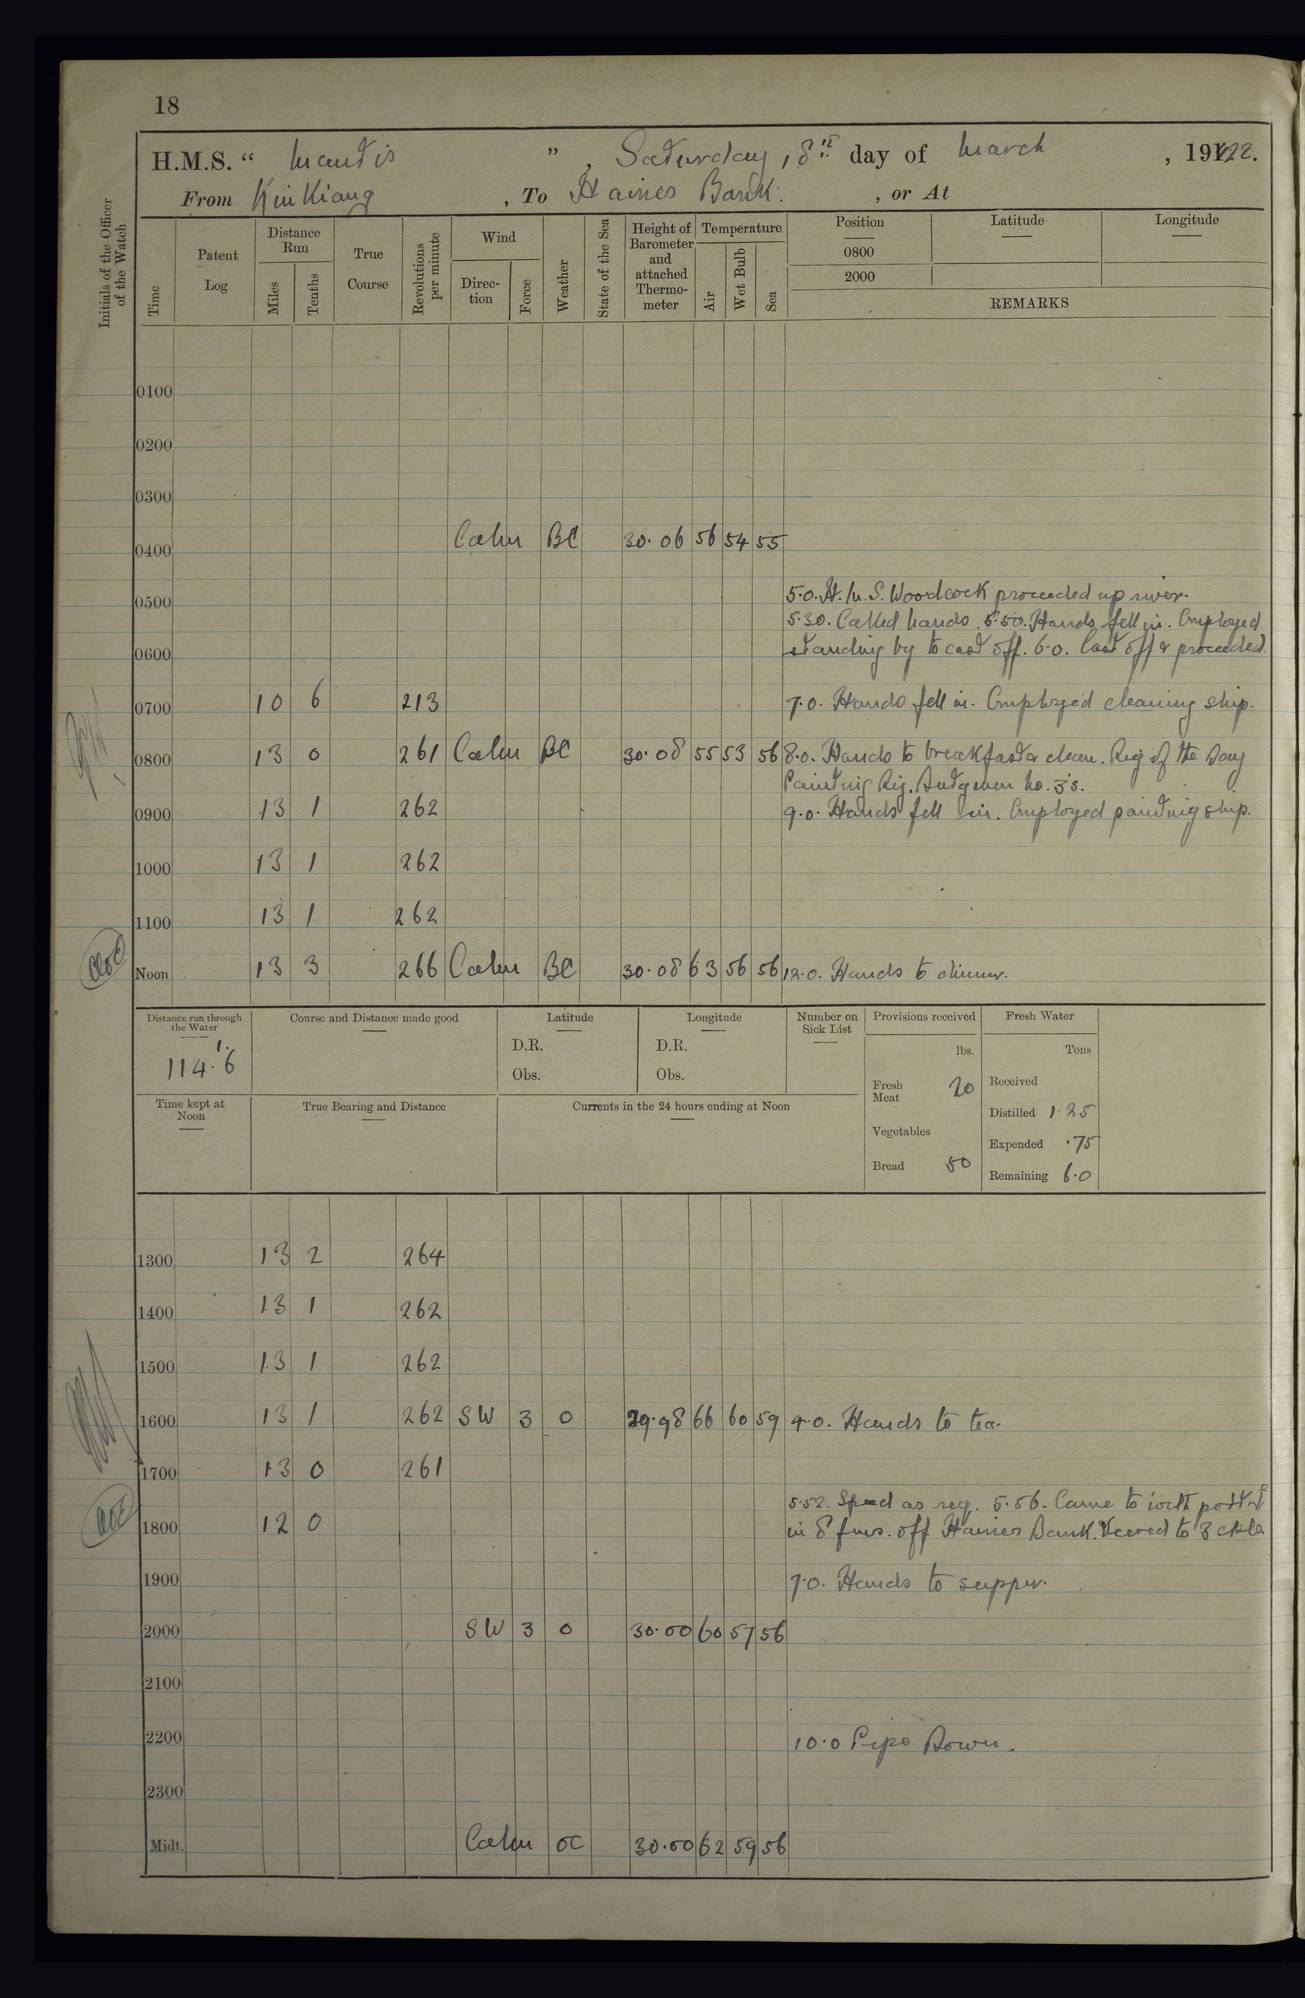 18
H.M.S. “ Mantis ” , Saturday, 18th day of March , 191922.
From KiuKiang , To Haines Bank. , or At
Initials of the Officer of the Watch
Time
Patent Log
Distance Run
Miles
Tenths
True Course
Revolutions per minute
Wind
Direction
Force
Weather
State of the Sea
Height of Barometer and attached Thermometer
Temperature
Air
Wet Bulb
Sea
Position
0800
2000
Latitude
Longitude
REMARKS
0100
0200
0300
0400 Calm BC 30.06 56 54 55
0500 5.0. H.M.S. Woodcock proceeded up river.
5.30. Called hands. 5.50. Hands fell in. Employed
0600 standing by to cast off. 6.0. Cast off & proceeded.
0700 10 6 213 7.0. Hands fell in. Employed cleaning ship.
0800 13 0 261 Calm BC 30.08 55 53 56 8.0. Hands to breakfast & clean. Rig of the Day
Painting Rig. Nightmen No. 3's.
0900 13 1 262 9.0. Hands fell in. Employed painting ship.
1000 13 1 262
1100 13 1 262
Noon 13 3 266 Calm BC 30.08 63 56 56 12.0. Hands to dinner.
Distance run through the Water
114.6 1.
Course and Distance made good
Latitude
D.R.
Obs.
Longitude
D.R.
Obs.
Number on Sick List
Provisions received
lbs.
Fresh Meat 20
Vegetables
Bread 50
Fresh Water
Tons
Received
Distilled 1.25
Expended .75
Remaining 6.0
Time kept at Noon
True Bearing and Distance
Currents in the 24 hours ending at Noon
1300 13 2 264
1400 13 1 262
1500 13 1 262
1600 13 1 262 SW 3 O 29.98 66 60 59 4.0. Hands to tea.
1700 13 0 261
5.52. Speed as req. 5.56. Came to with port
1800 12 0 in 8 fms. off Haines Bank. Veered to 3 ckls.
1900 7.0. Hands to supper.
2000 SW 3 O 30.00 60 57 56
2100
2200 10.0 Pipe Down.
2300
Midt. Calm OC 30.00 62 59 56